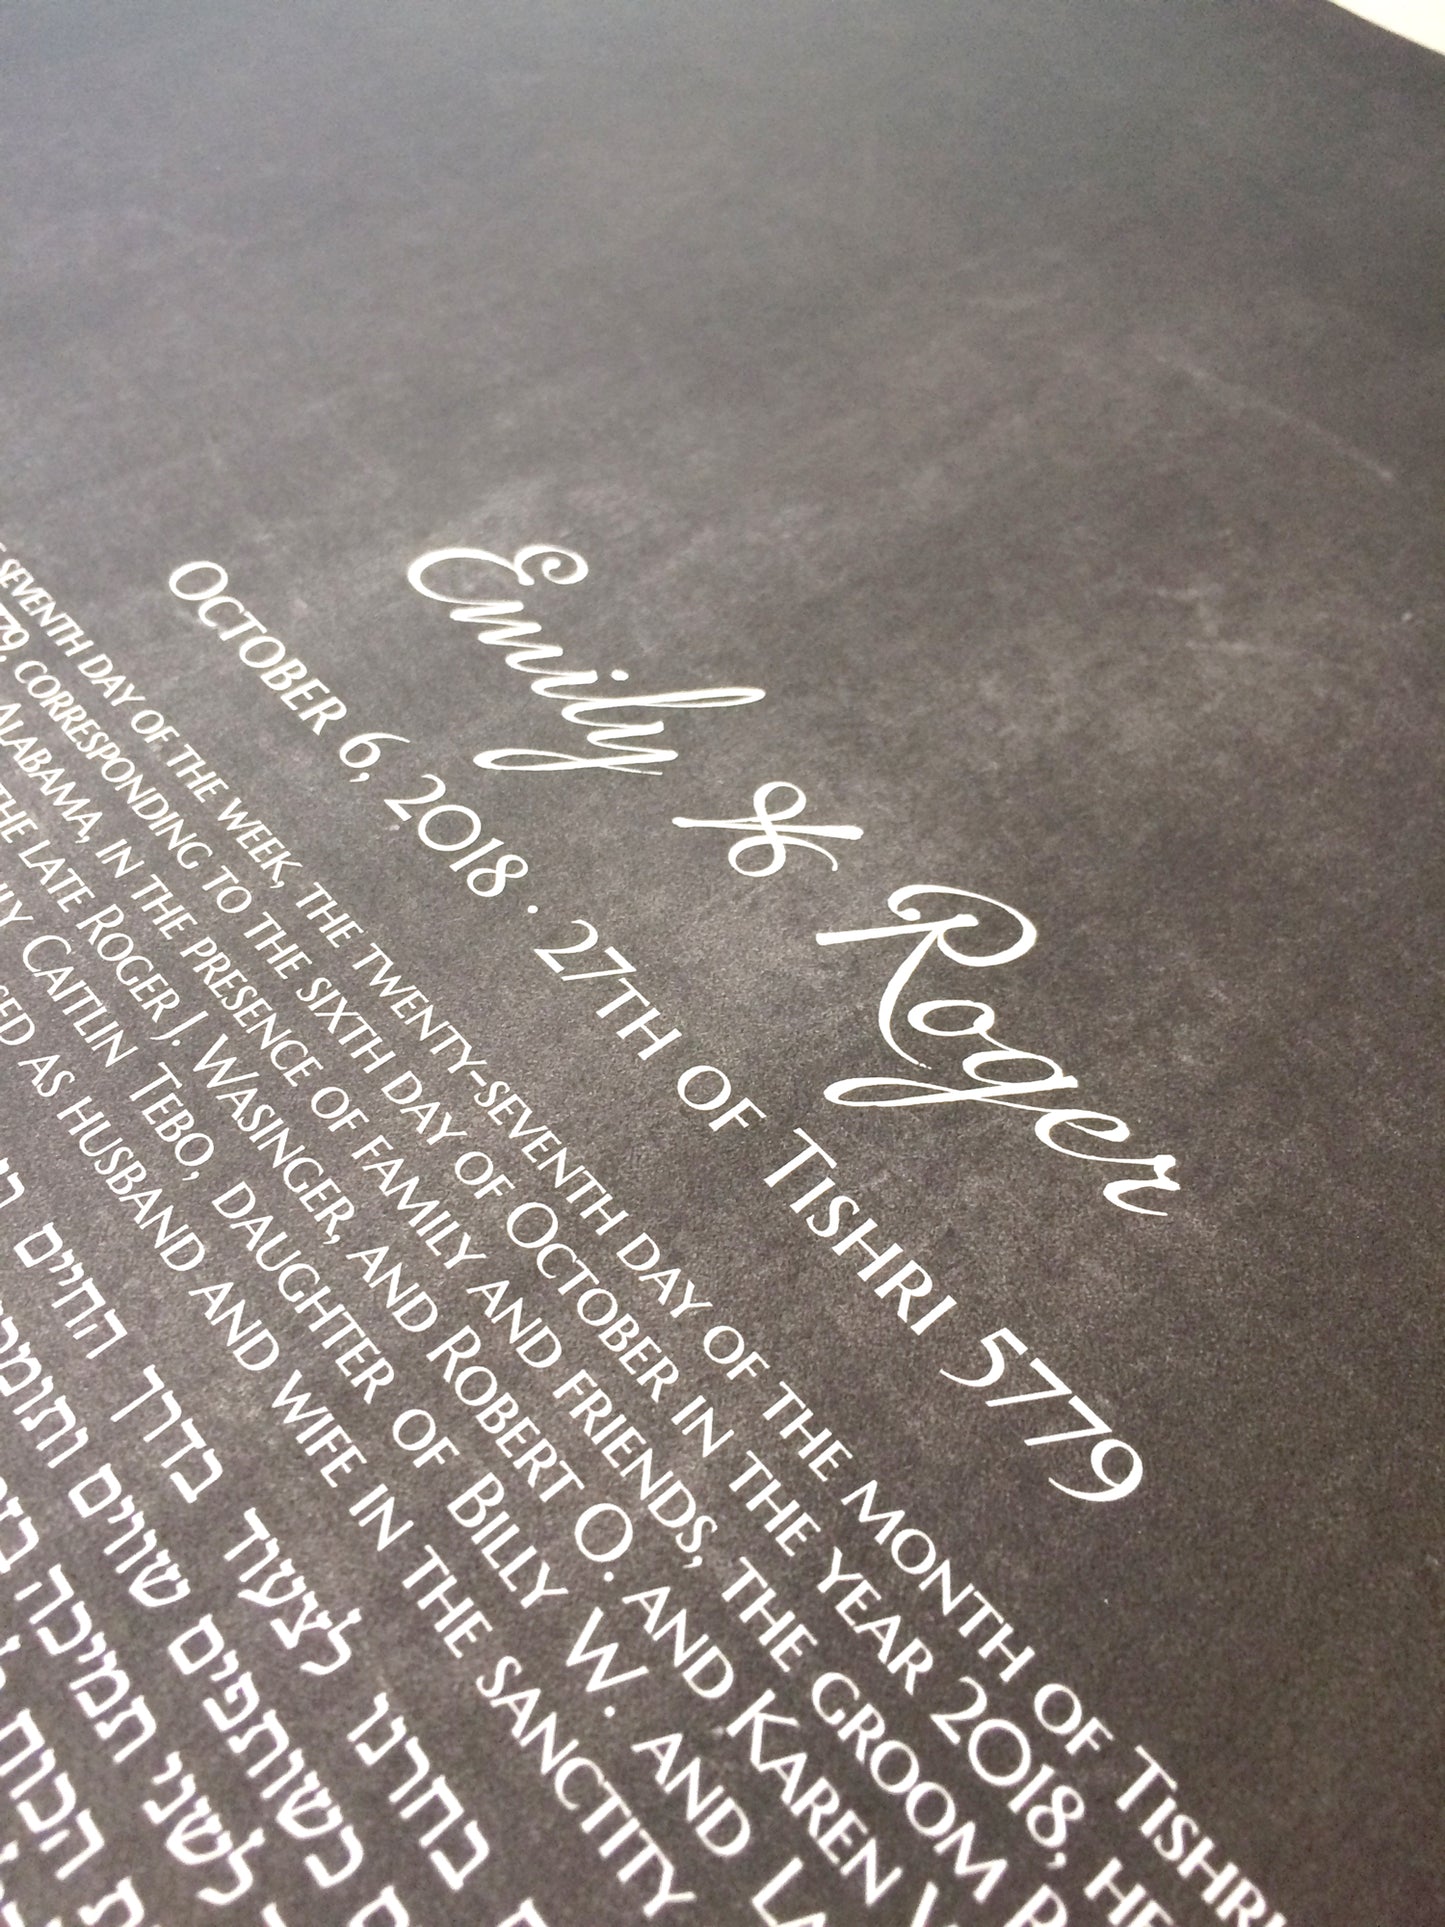 Emily & Roger
OCTOBER 6, 2018 · 27TH OF TISHRI 5779
SEVENTH DAY OF THE WEEK, THE TWENTY-SEVENTH DAY OF THE MONTH OF TISHRI
CORRESPONDING TO THE SIXTH DAY OF OCTOBER IN THE YEAR 2018,
ALABAMA, IN THE PRESENCE OF FAMILY AND FRIENDS, THE GROOM
THE LATE ROGER J. WASINGER, AND ROBERT O. AND KAREN
CAITLIN TEBO, DAUGHTER OF BILLY W. AND
AS HUSBAND AND WIFE IN THE SANCTITY
בחרנו לצעוד בדרך החיים
כשותפים שווים
לשני תמיכה